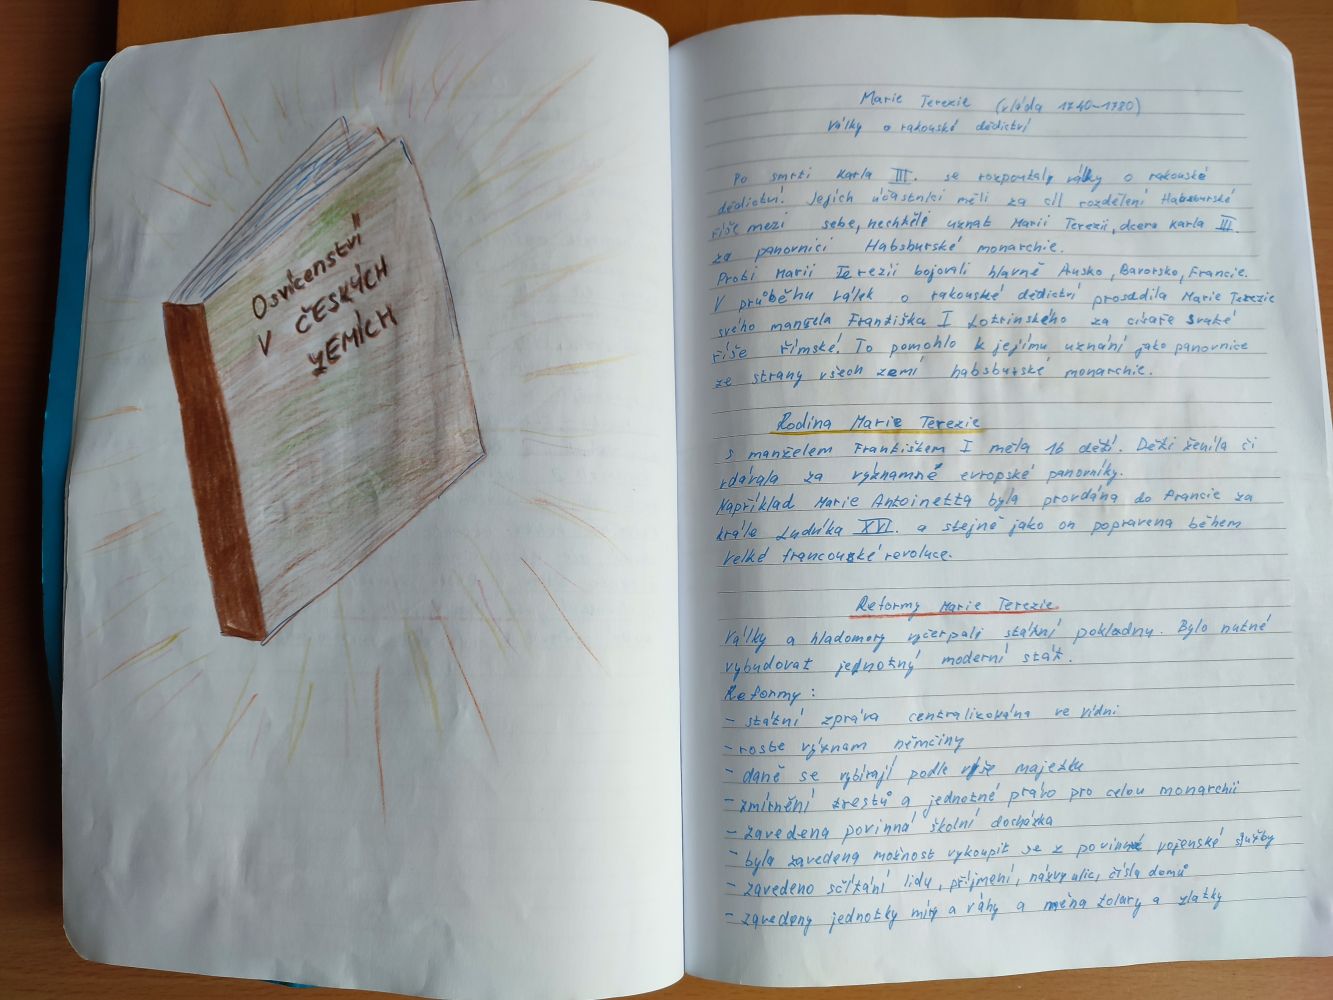 Osvícenství
V ČESKÝCH
ZEMÍCH
Marie Terezie (vláda 1740-1780)
Války o rakouské dědictví
Po smrti Karla III. se rozpoutaly války o rakouské
dědictví. Jejich účastníci měli za cíl rozdělení Habsburské
říše mezi sebe, nechtěli uznat Marii Terezii, dceru Karla III.
za panovnici Habsburské monarchie.
Proti Marii Terezii bojovali hlavně Rusko, Bavorsko, Francie.
V průběhu válek o rakouské dědictví prosadila Marie Terezie
svého manžela Františka I Lotrinského za císaře Svaté
říše římské. To pomohlo k jejímu uznání jako panovnice
ze strany všech zemí habsburské monarchie.
Rodina Marie Terezie
s manželem Františkem I měla 16 dětí. Děti ženila či
vdávala za významné evropské panovníky.
Například Marie Antoinetta byla provdána do Francie za
krále Ludvíka XVI. a stejně jako on popravena během
Velké francouzské revoluce.
Reformy Marie Terezie
Války a hladomory vyčerpali státní pokladnu. Bylo nutné
vybudovat jednotný moderní stát.
Reformy:
- státní zpráva centralizována ve vídni
- roste význam němčiny
- daně se vybírají podle výše majetku
- zmírnění trestů a jednotné právo pro celou monarchii
- zavedena povinná školní docházka
- byla zavedena možnost vykoupit se z povinné vojenské služby
- zavedeno sčítání lidu, příjmení, názvy ulic, čísla domů
- zavedeny jednotky míry a váhy a měna tolary a zlatky